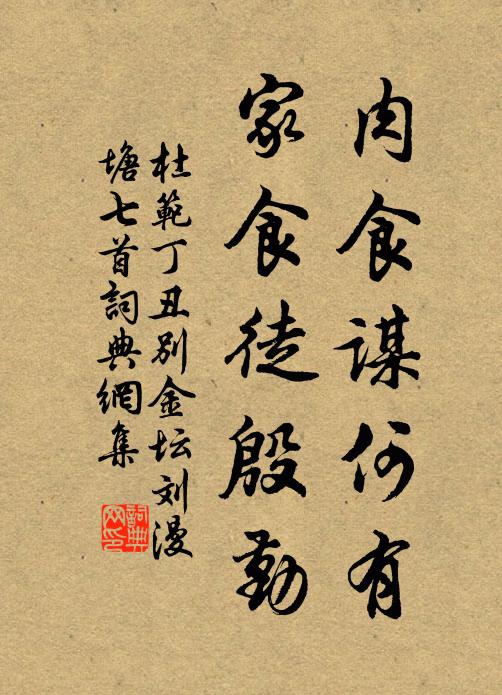 肉食谋何有
家食徒殷勤
杜範丁丑別金坛刘漫
塘七首詞典網集
詞典网印